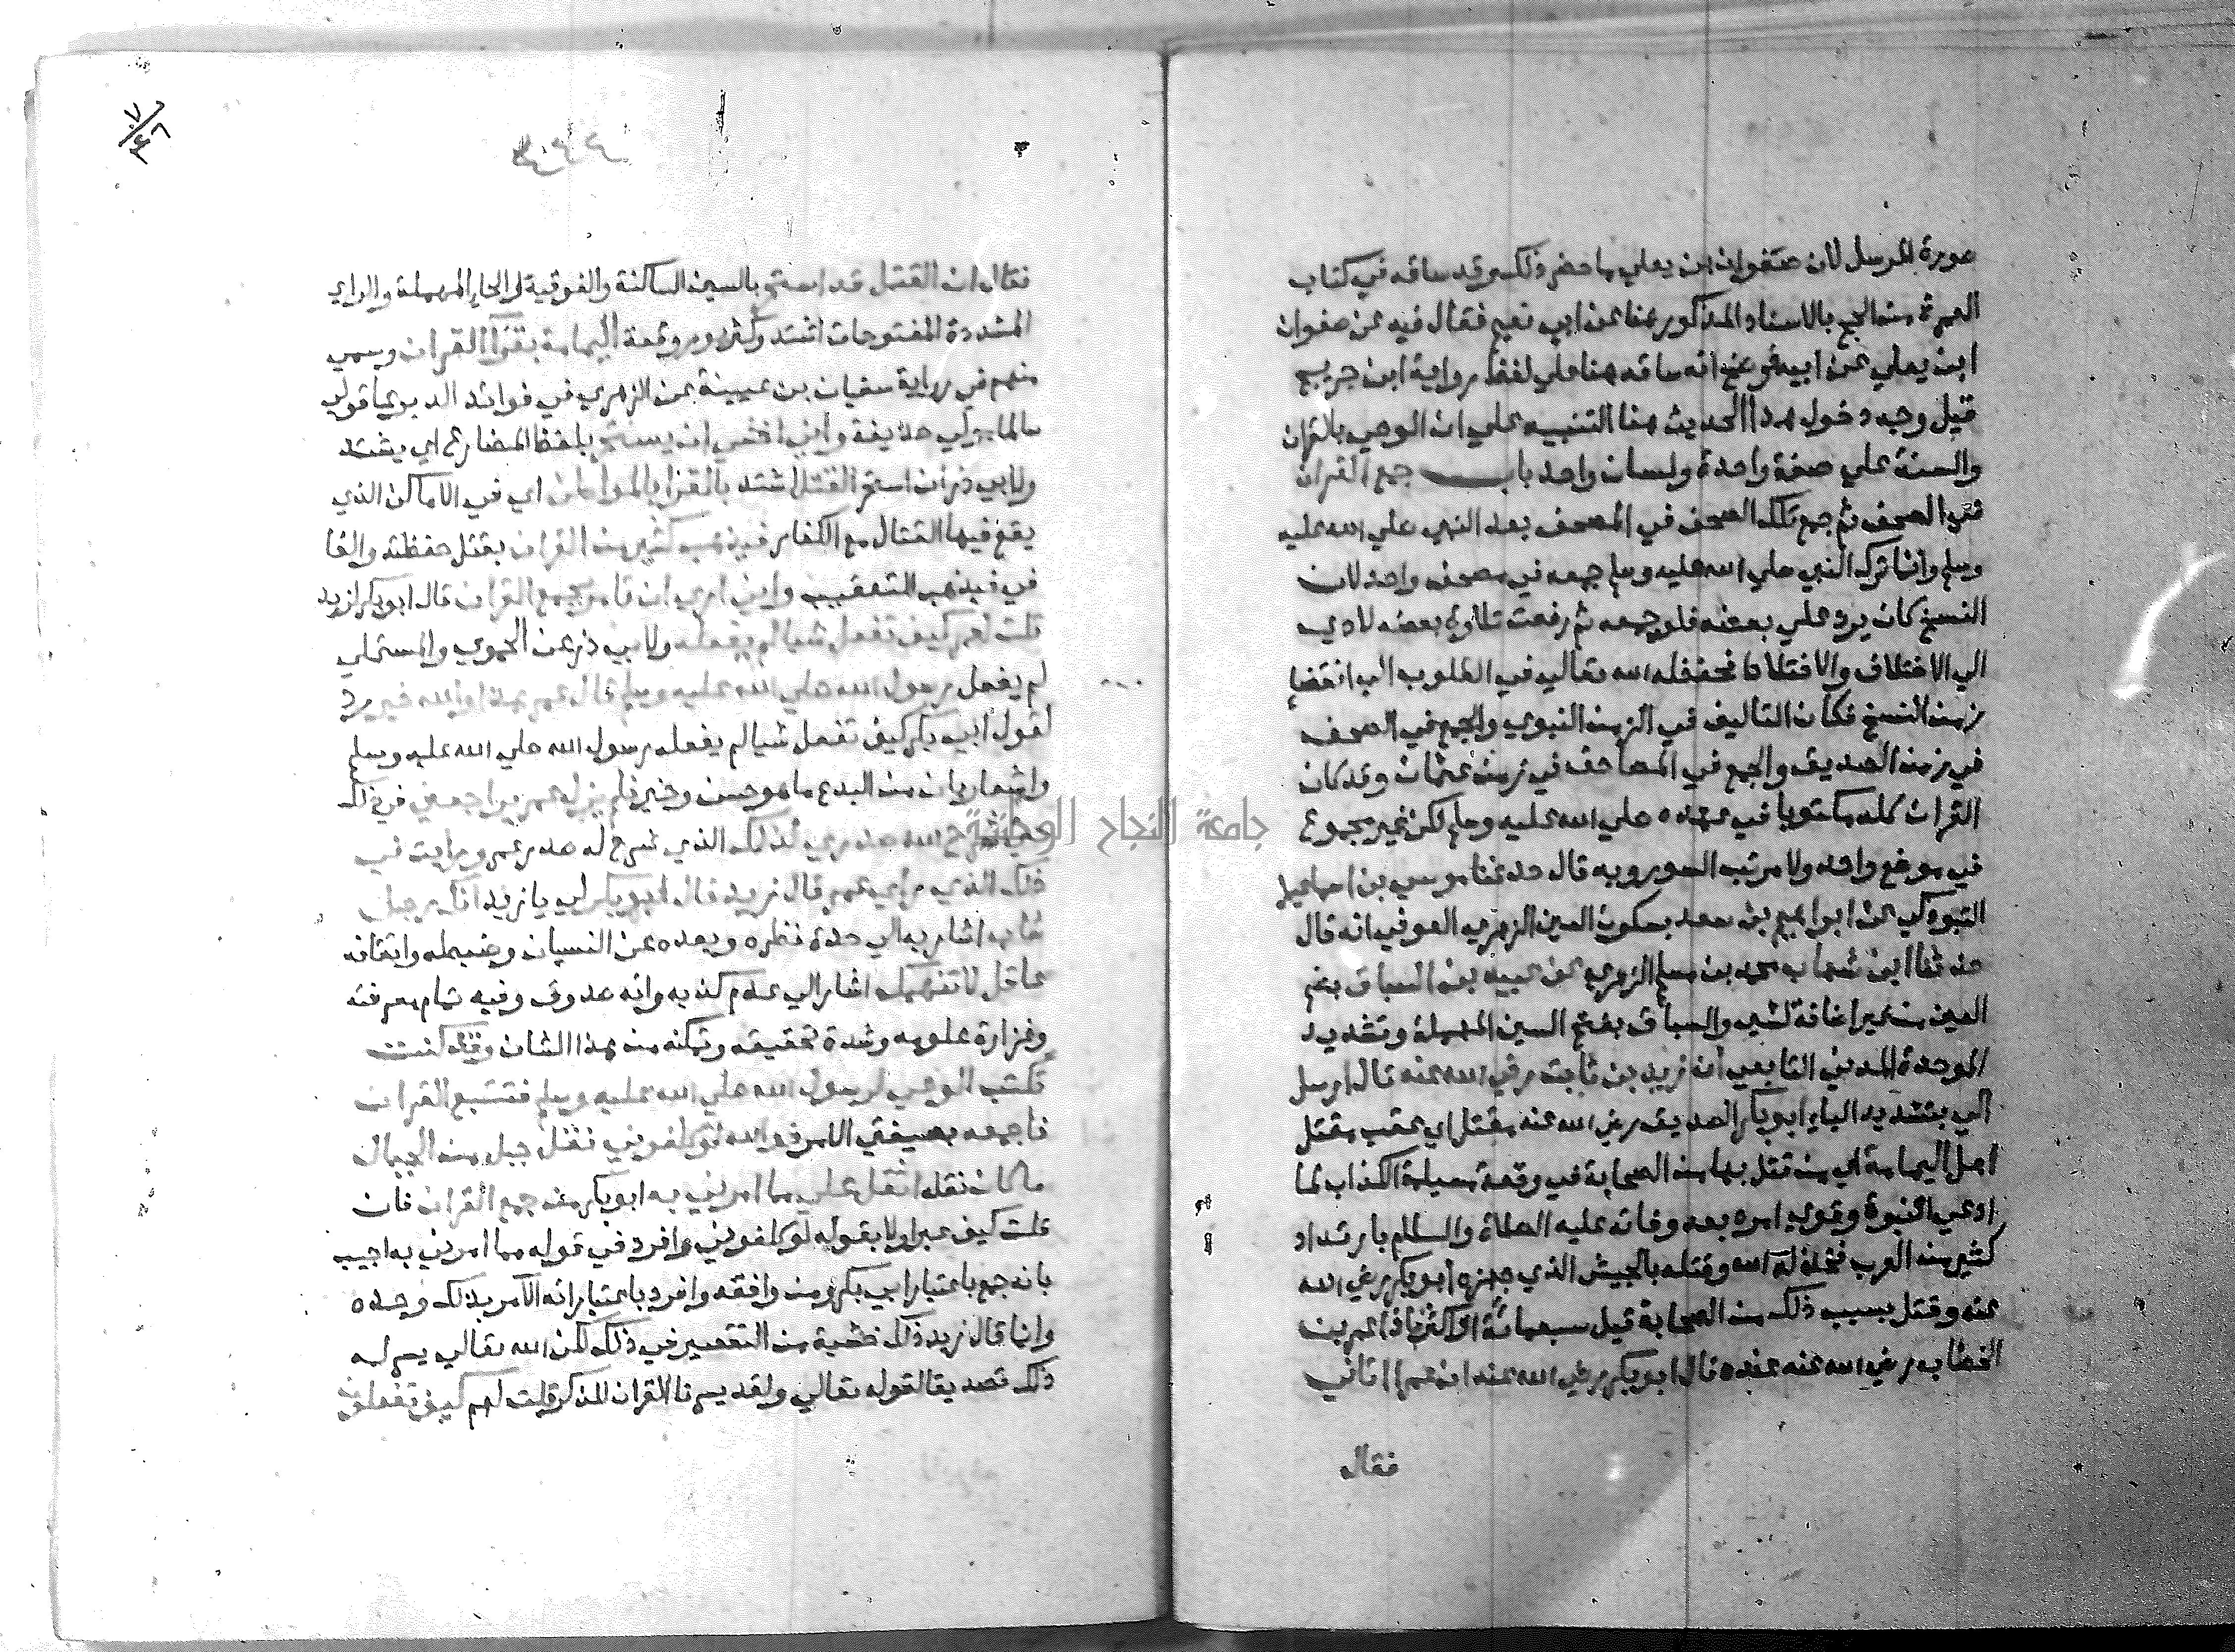 صورة المرسل لان صفوان ابن يعلي ما حضر ذلك وقد ساقه في كتاب
العمرة من الحج بالاسناد المذكور هنا عن ابي نعيم فقال فيه عن صفوان
ابن يعلي عن ابيه فوضح انه ساقه هنا علي لفظ رواية ابن جريج
قيل وجه دخول هذا الحديث هنا التنبيه علي ان الوحي بالقران
والسنة علي صفة واحدة ولسان واحد باب جمع القران
في الصحف ثم جمع تلك الصحف في المصحف بعد النبي صلي الله عليه
وسلم وانما ترك النبي صلي الله عليه وسلم جمعه في مصحف واحد لان
النسخ كان يرد علي بعضه فلو جمعه ثم رفعت تلاوة بعضه لادي
الي الاختلاف والاختلاط فحفظه الله تعالي في القلوب الي انقضا
زمن النسخ فكان التاليف في الزمن النبوي والجمع في الصحف
في زمن الصديق والجمع في المصاحف في زمن عثمان وقد كان
القران كله مكتوبا في عهده صلي الله عليه وسلم لكن غير مجموع
في موضع واحد ولا مرتب السور وبه قال حدثنا موسي بن اسماعيل
التبوذكي عن ابراهيم بن سعد بسكون العين الزهري العوفي انه قال
حدثنا ابن شهاب محمد بن مسلم الزهري عن عبيد بن السباق بضم
العين من غير اضافة لشي والسباق بفتح السين المهملة وتشديد
الموحدة المدني التابعي ان زيد بن ثابت رضي الله عنه قال ارسل
الي بتشديد الياء ابو بكر الصديق رضي الله عنه مقتل اي عقب مقتل
اهل اليمامة اي من قتل بها من الصحابة في وقعة مسيلمة الكذاب لما
ادعي النبوة وقوي امره بعد وفاته عليه الصلاة والسلام بارتداد
كثير من العرب فخذله الله وقتله بالجيش الذي جهزه ابو بكر رضي الله
عنه وقتل بسبب ذلك من الصحابة قيل سبعمائة او اكثر فاذا عمر بن
الخطاب رضي الله عنه عنده قال ابو بكر رضي الله عنه ان عمر اتاني
فقال
فقال ان القتل قد استحر بالسين الساكنة والفوقية والحاء المهملة والراي
المشددة المفتوحات اشتد وكثر يوم وقعة اليمامة بقرا القران وسمي
منهم في رواية سفيان بن عيينة عن الزهري في فوائد الدير عاقولي
سالما مولي حذيفة واني اخشي ان يستحر بلفظ المضارع اي يشتد
ولابي ذر ان استحر القتل اشتد بالقرا بالمواطن اي في الاماكن الذي
يقع فيها القتال مع الكفار فيذهب كثير من القران بقتل حفظته والفا
في فيذهب للتعقيب واني اري ان تامر بجمع القران قال ابو بكر لزيد
قلت لعمر كيف تفعل شيا لم يفعله ولابي ذر عن الحموي والمستملي
لم يفعل رسول الله صلي الله عليه وسلم قال عمر هذا والله خير رد
لقول ابي بكر كيف تفعل شيا لم يفعله رسول الله صلي الله عليه وسلم
واشعار بان من البدع ما هو حسن وخير فلم يزل عمر يراجعني في ذلك
حتي شرح الله صدري لذلك الذي شرح له صدر عمر ورايت في
ذلك الذي راي عمر قال زيد قال ابو بكر لي يا زيد انك رجل
شاب اشار به الي حدة نظره وبعده عن النسيان وضبطه واتقانه
عاقل لا نتهمك اشار الي عدم كذبه وانه صدوق وفيه تمام معرفته
وغزارة علومه وشدة تحقيقه وتمكنه من هذا الشان وقد كنت
تكتب الوحي لرسول الله صلي الله عليه وسلم فتتبع القران
فاجمعه بصيغتي الامر فوالله لو كلفوني نقل جبل من الجبال
ما كان نقله اثقل علي مما امرني به ابو بكر من جمع القران فان
قلت كيف عبر اولا بقوله لو كلفوني وافرد في قوله مما امرني به اجيب
بانه جمع باعتبار ابي بكر ومن وافقه وافرد باعتبار انه الآمر بذلك وحده
وانما قال زيد ذلك خشية من التقصير في ذلك لكن الله تعالي يسر له
ذلك تصديقا لقوله تعالي ولقد يسرنا القران للذكر قلت لهم كيف تفعلون
جامعة النجاح الوطنية